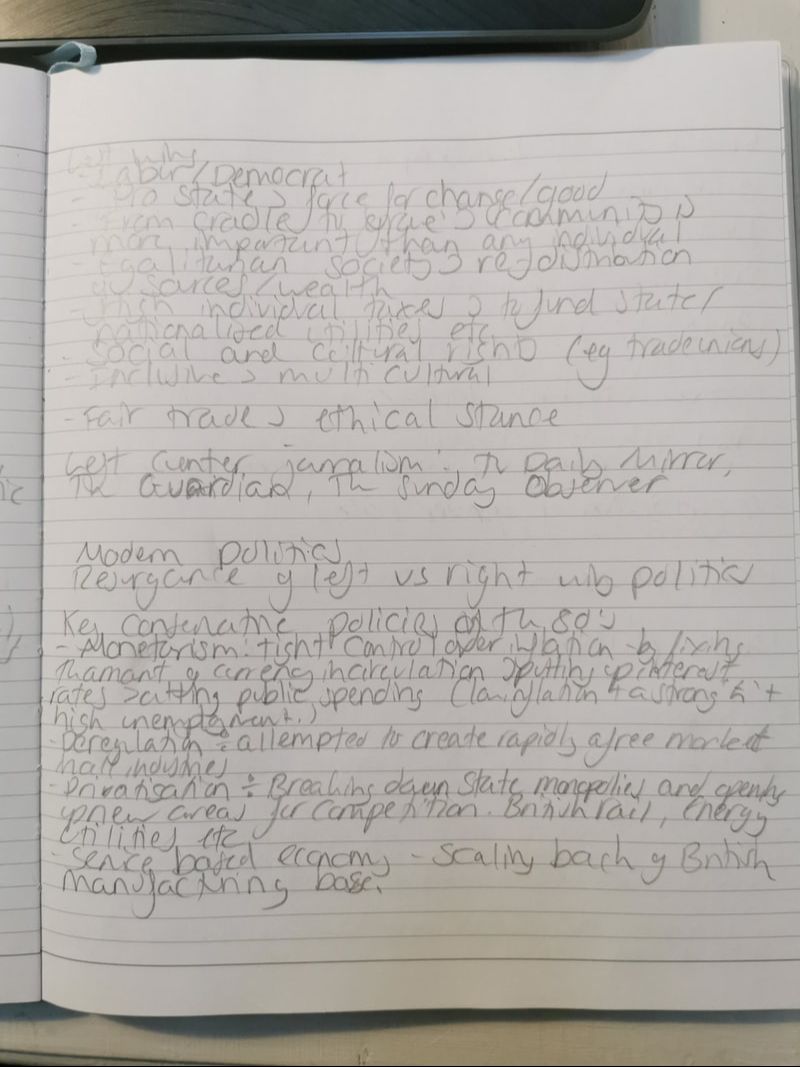 Left wing
- Labur/Democrat
- Pro state > force for change/good
- From cradle to grave > Community is
more important than any individual
- Egalitarian society > redistribution
of sources/wealth
- High individual taxes > to fund state/
nationalised utilities etc.
- Social and cultural rights (eg trade unions)
- Inclusive > multi cultural
- Fair trade > ethical stance
Left Center jurnalism: The Daily Mirror,
The Guardian, The Sunday Observer
Modern politics
Resurgance of left vs right wing politics
Key Conservative policies of the 80's
- Monetarism: tight control over inflation by fixing
the amant of currency in circulation > putting up interest
rates > cutting public spending (low inflation + a strong £ +
high unemployment.)
- Deregulation ÷ attempted to create rapidly a free market
in all industries
- Privatisation ÷ Breaking down State monopolies and opening
up new areas for competition. British rail, Energy
utilities etc
- Service based economy - Scaling back of British
manufacturing base.